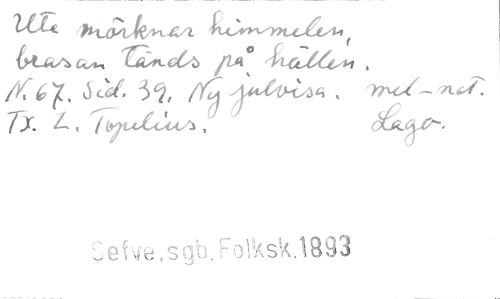 Ute mörknar himmelen,
brasan tänds på hällen.
N. 67. Sid. 39. Ny julvisa. mel-not.
Tx. Z. Topelius. Lago.
Sefve, sgb. Folksk. 1893